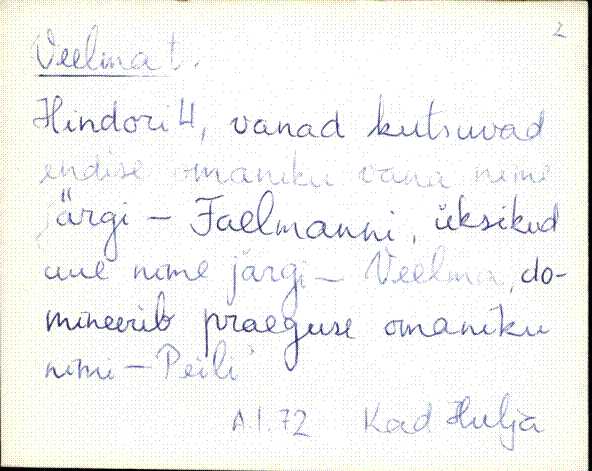 2
Veelma t.
Hindori 4, vanad kutsuvad
endise omaniku vana nime
järgi – Faelmanni, üksikud
uue nime järgi – Veelma, do-
mineerib praeguse omaniku
nimi – Peili
A.I.72 Kad Hulja